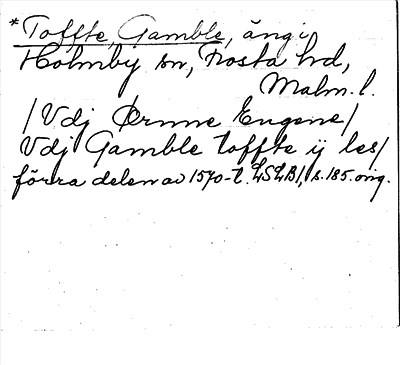 *Toffte, Gamble, äng i
Holmby sn, Frosta hd,
Malm. l.
/Vdj Ørnne Engene/
Vdj Gamble toffte ij les/
förra delen av 1570-t. LSLB1, s. 185. orig.